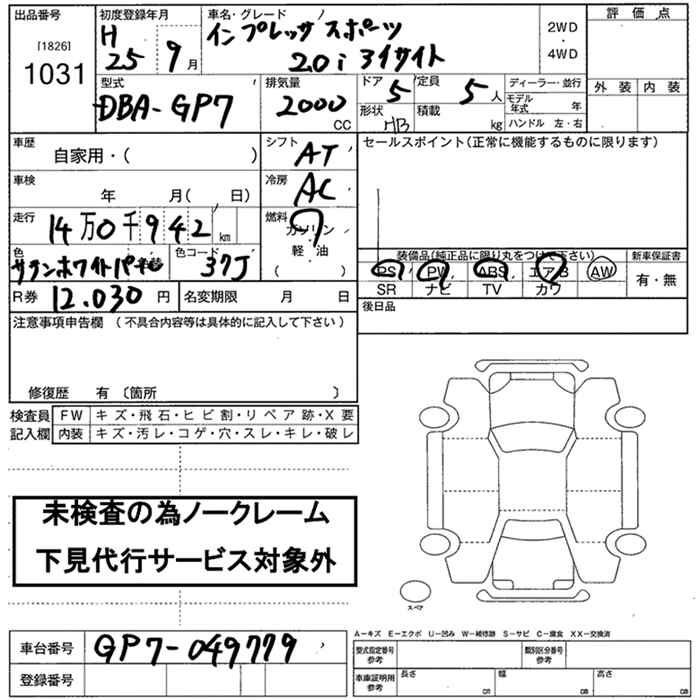 出品番号
[1826]
1031
初度登録年月
H
25 9月
車名・グレード
インプレッサ スポーツ
2.0i アイサイト
2WD
・
4WD
評価点
外装 内装
型式
DBA-GP7
排気量
2000
CC
ドア
5
定員
5人
形状
HB
積載
kg
ディーラー・並行
モデル年式 年
ハンドル 左・右
車歴
自家用・( )
シフト
AT
セールスポイント(正常に機能するものに限ります)
車検
年 月( 日)
冷房
AC
走行
14万0千942km
燃料
ガソリン
・
軽油
( )
色
サテンホワイトパール
色コード
37J
装備品(純正品に限り丸をつけて下さい)
PS PW ABS エアB AW
SR ナビ TV カワ
新車保証書
有・無
R券 12.030円
名変期限 月 日
後日品
注意事項申告欄 (不具合内容等は具体的に記入して下さい)
修復歴 有 〔箇所 〕
検査員記入欄
FW キズ・飛石・ヒビ割・リペア跡・X要
内装 キズ・汚レ・コゲ・穴・スレ・キレ・破レ
未検査の為ノークレーム
下見代行サービス対象外
スペア
A-キズ E-エクボ U-凹み W-補修跡 S-サビ C-腐食 XX-交換済
車台番号 GP7-049779
登録番号
型式指定番号 参考
類別区分番号 参考
車庫証明用 参考
長さ cm
幅 cm
高さ cm